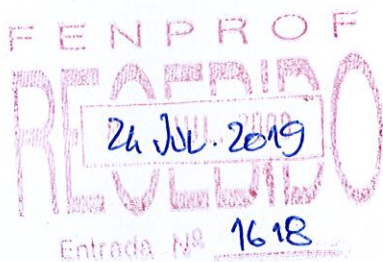 FENPROF
RECEBIDO
24 JUL. 2019
Entrada Nº 1618